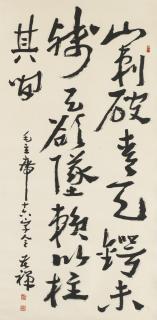 山刺破青天锷未
残天欲墮賴以柱
其间
毛主席十六字令